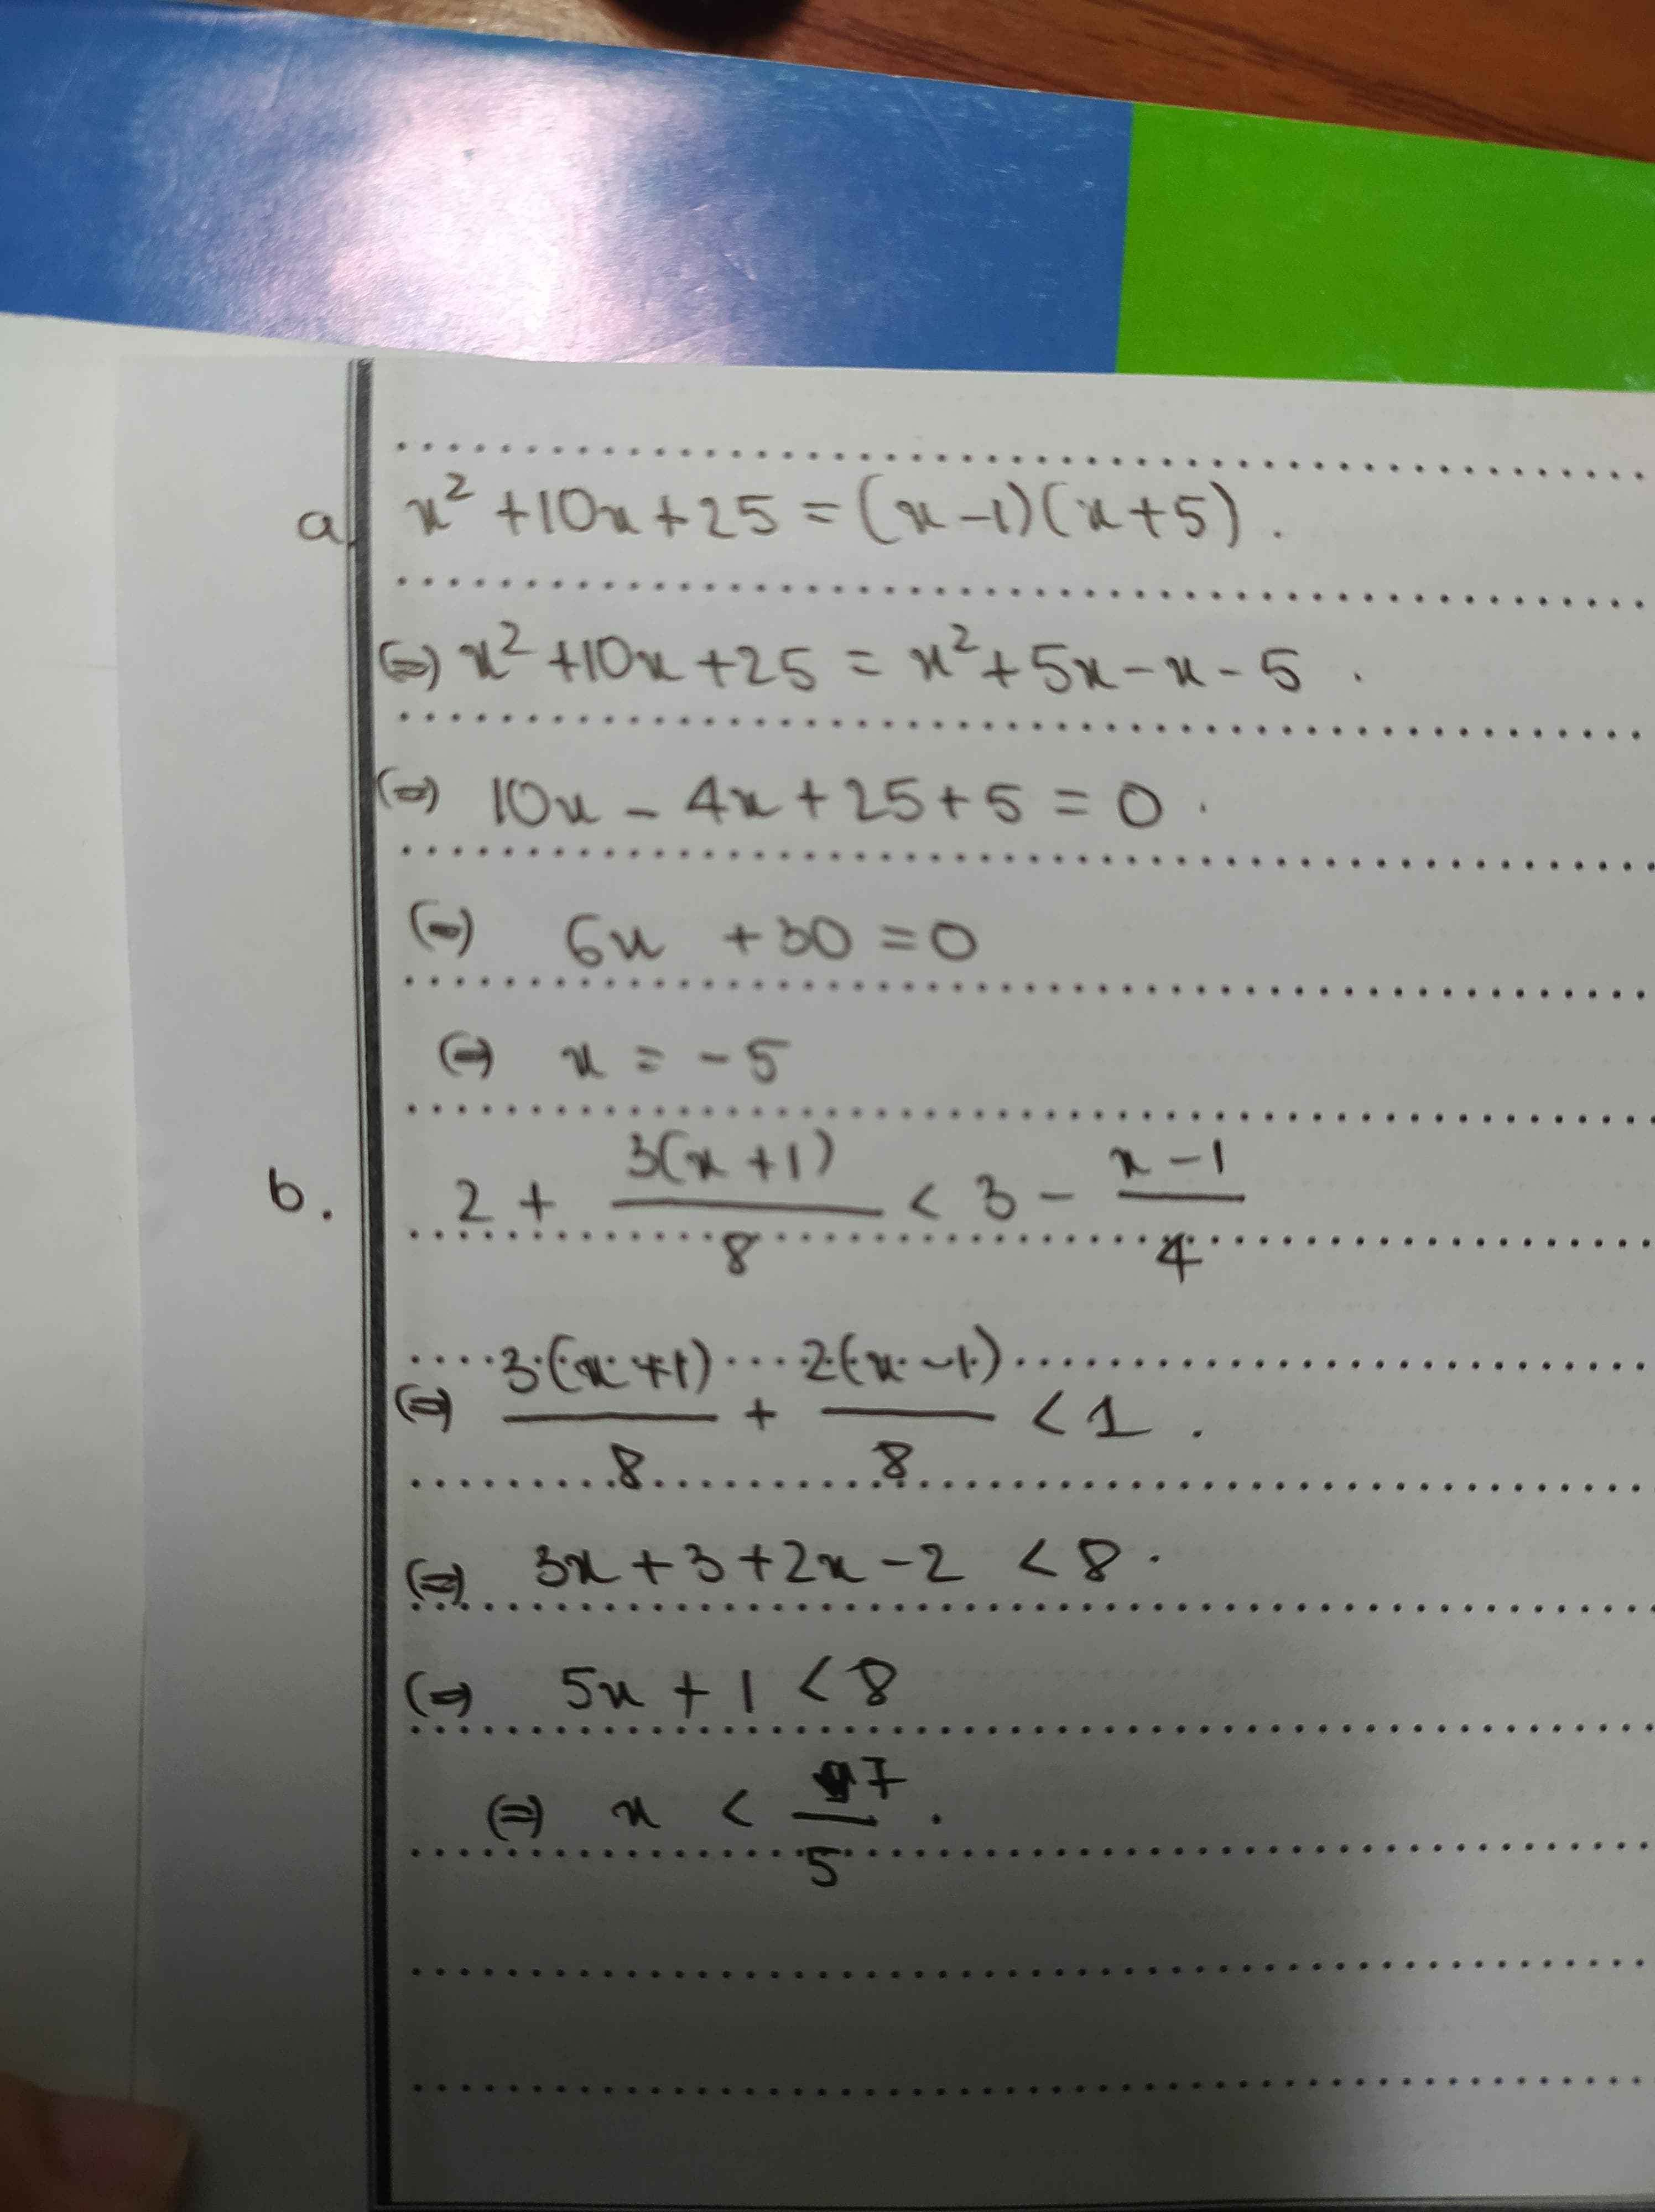 a. x² + 10x + 25 = (x - 1)(x + 5).
(=) x² + 10x + 25 = x² + 5x - x - 5.
(=) 10x - 4x + 25 + 5 = 0.
(=) 6x + 30 = 0
(=) x = -5
b. 2 + 3(x + 1)/8 < 3 - x - 1/4
(=) 3(x + 1)/8 + 2(x - 1)/8 < 1.
(=) 3x + 3 + 2x - 2 < 8.
(=) 5x + 1 < 8
(=) x < 7/5.